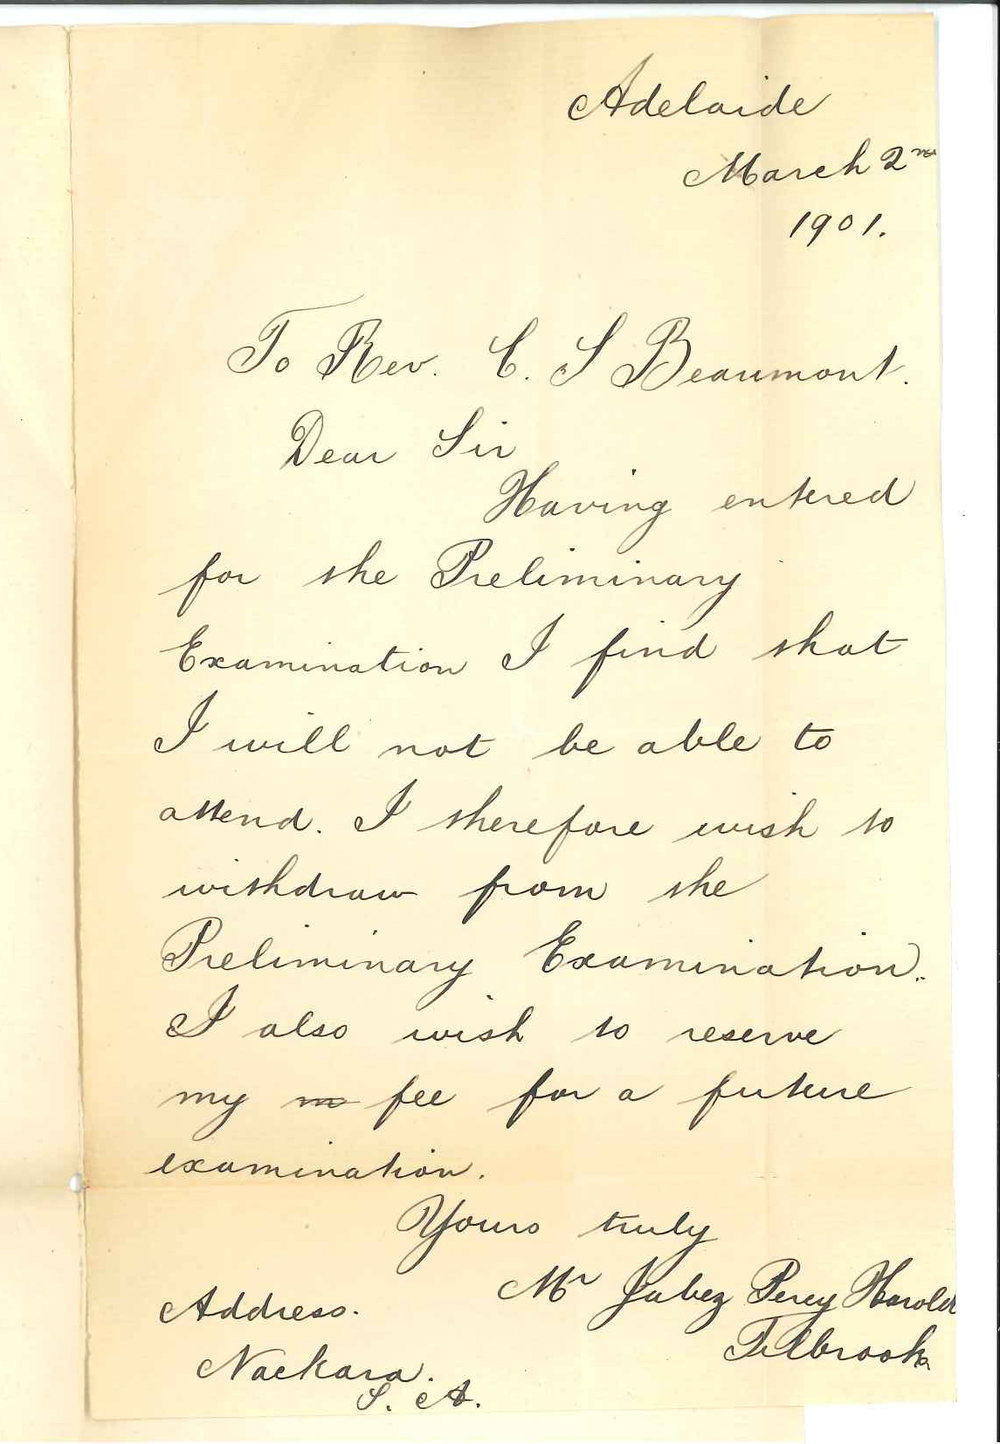 Adelaide
March 2nd
1901.
To Rev. C. S Beaumont.
Dear Sir
Having entered
for the Preliminary
Examination I find that
I will not be able to
attend. I therefore wish to
withdraw from the
Preliminary Examination.
I also wish to reserve
my m fee for a future
examination.
Yours truly
Mr Jabez Percy Harold
Tilbrook
Address.
Nackara.
S. A.